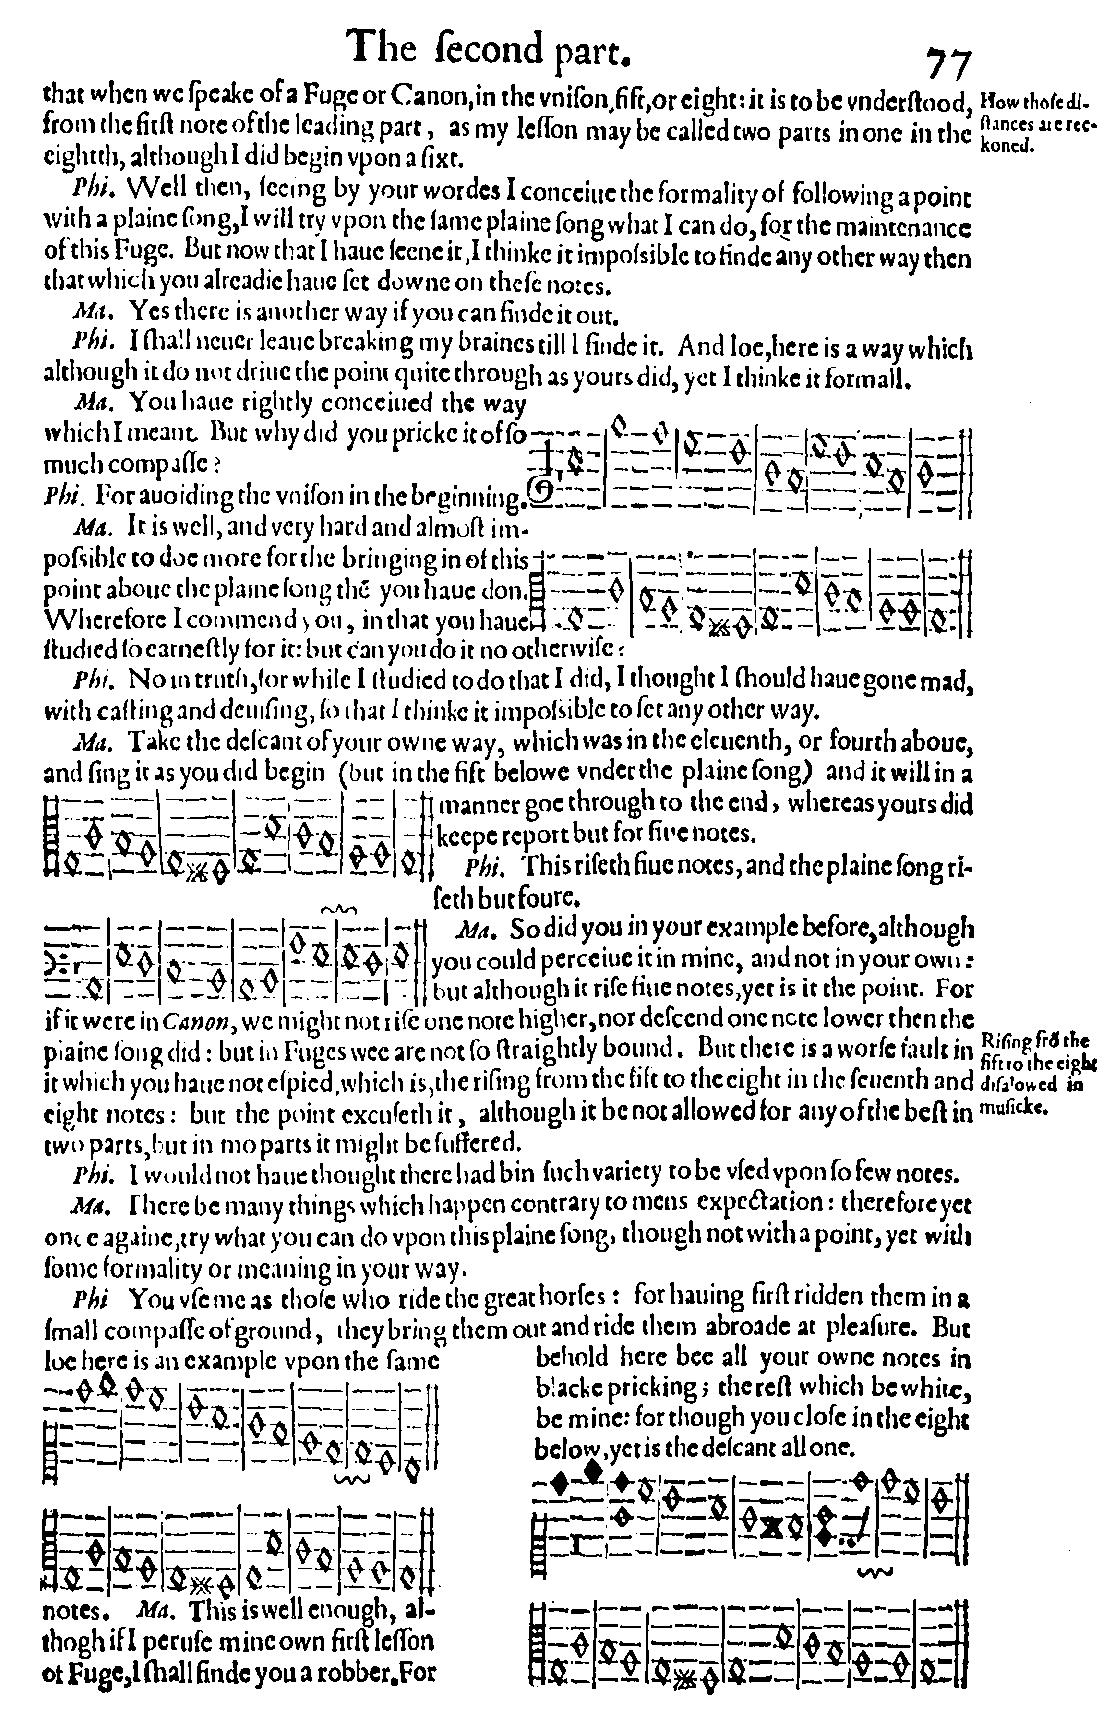 The ſecond part.
77
that when we ſpeake of a Fuge or Canon, in the vniſon, fift, or eight: it is to be vnderſtood,
from the firſt note of the leading part, as my leſſon may be called two parts in one in the
eightth, although I did begin vpon a ſixt.
How thoſe di-
ſtances are rec-
koned.
Phi. Well then, ſeeing by your wordes I conceiue the formality of following a point
with a plaine ſong, I will try vpon the ſame plaine ſong what I can do, for the maintenance
of this Fuge. But now that I haue ſeene it, I thinke it impoſsible to finde any other way then
that which you alreadie haue ſet downe on theſe notes.
Ma. Yes there is another way if you can finde it out.
Phi. I ſhall neuer leaue breaking my braines till I finde it. And loe, here is a way which
although it do not driue the point quite through as yours did, yet I thinke it formall.
Ma. You haue rightly conceiued the way
which I meant. But why did you pricke it of ſo
much compaſſe?
Phi. For auoiding the vniſon in the beginning.
Ma. It is well, and very hard and almoſt im-
poſsible to doe more for the bringing in of this
point aboue the plaine ſong thẽ you haue don.
Wherefore I commend you, in that you haue
ſtudied ſo earneſtly for it: but can you do it no otherwiſe?
Phi. No in truth, for while I ſtudied to do that I did, I thought I ſhould haue gone mad,
with caſting and deuiſing, ſo that I thinke it impoſsible to ſet any other way.
Ma. Take the deſcant of your owne way, which was in the eleuenth, or fourth aboue,
and ſing it as you did begin (but in the fift belowe vnder the plaine ſong) and it will in a
manner goe through to the end, whereas yours did
keepe report but for fiue notes.
Phi. This riſeth fiue notes, and the plaine ſong ri-
ſeth but foure.
Ma. So did you in your example before, although
you could perceiue it in mine, and not in your own:
but although it riſe fiue notes, yet is it the point. For
if it were in Canon, we might not riſe one note higher, nor deſcend one note lower then the
plaine ſong did: but in Fuges wee are not ſo ſtraightly bound. But there is a worſe fault in
it which you haue not eſpied, which is, the riſing from the fift to the eight in the ſeuenth and
eight notes: but the point excuſeth it, although it be not allowed for any of the beſt in
two parts, but in mo parts it might be ſuffered.
Riſing frõ the
fift to the eight
diſalowed in
muſicke.
Phi. I would not haue thought there had bin ſuch variety to be vſed vpon ſo few notes.
Ma. There be many things which happen contrary to mens expectation: therefore yet
once againe, try what you can do vpon this plaine ſong, though not with a point, yet with
ſome formality or meaning in your way.
Phi You vſe me as thoſe who ride the great horſes: for hauing firſt ridden them in a
ſmall compaſſe of ground, they bring them out and ride them abroade at pleaſure. But
loe here is an example vpon the ſame
notes. Ma. This is well enough, al-
thogh if I peruſe mine own firſt leſſon
of Fuge, I ſhall finde you a robber. For
behold here bee all your owne notes in
blacke pricking; the reſt which be white,
be mine: for though you cloſe in the eight
below, yet is the deſcant all one.